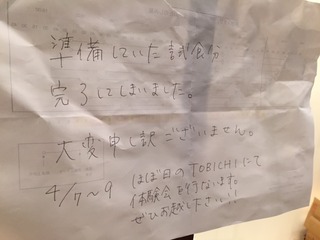 準備していた試食分
完了してしまいました。
大変申し訳ございません。
4/7〜9
ほぼ日のTOBICHIにて
体験会を行ないます。
ぜひお越し下さい!!